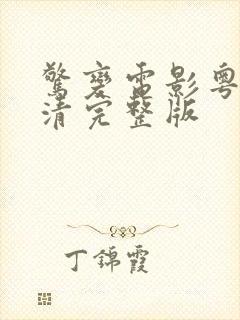 驚變電影粵
清完整版
丁錦霞